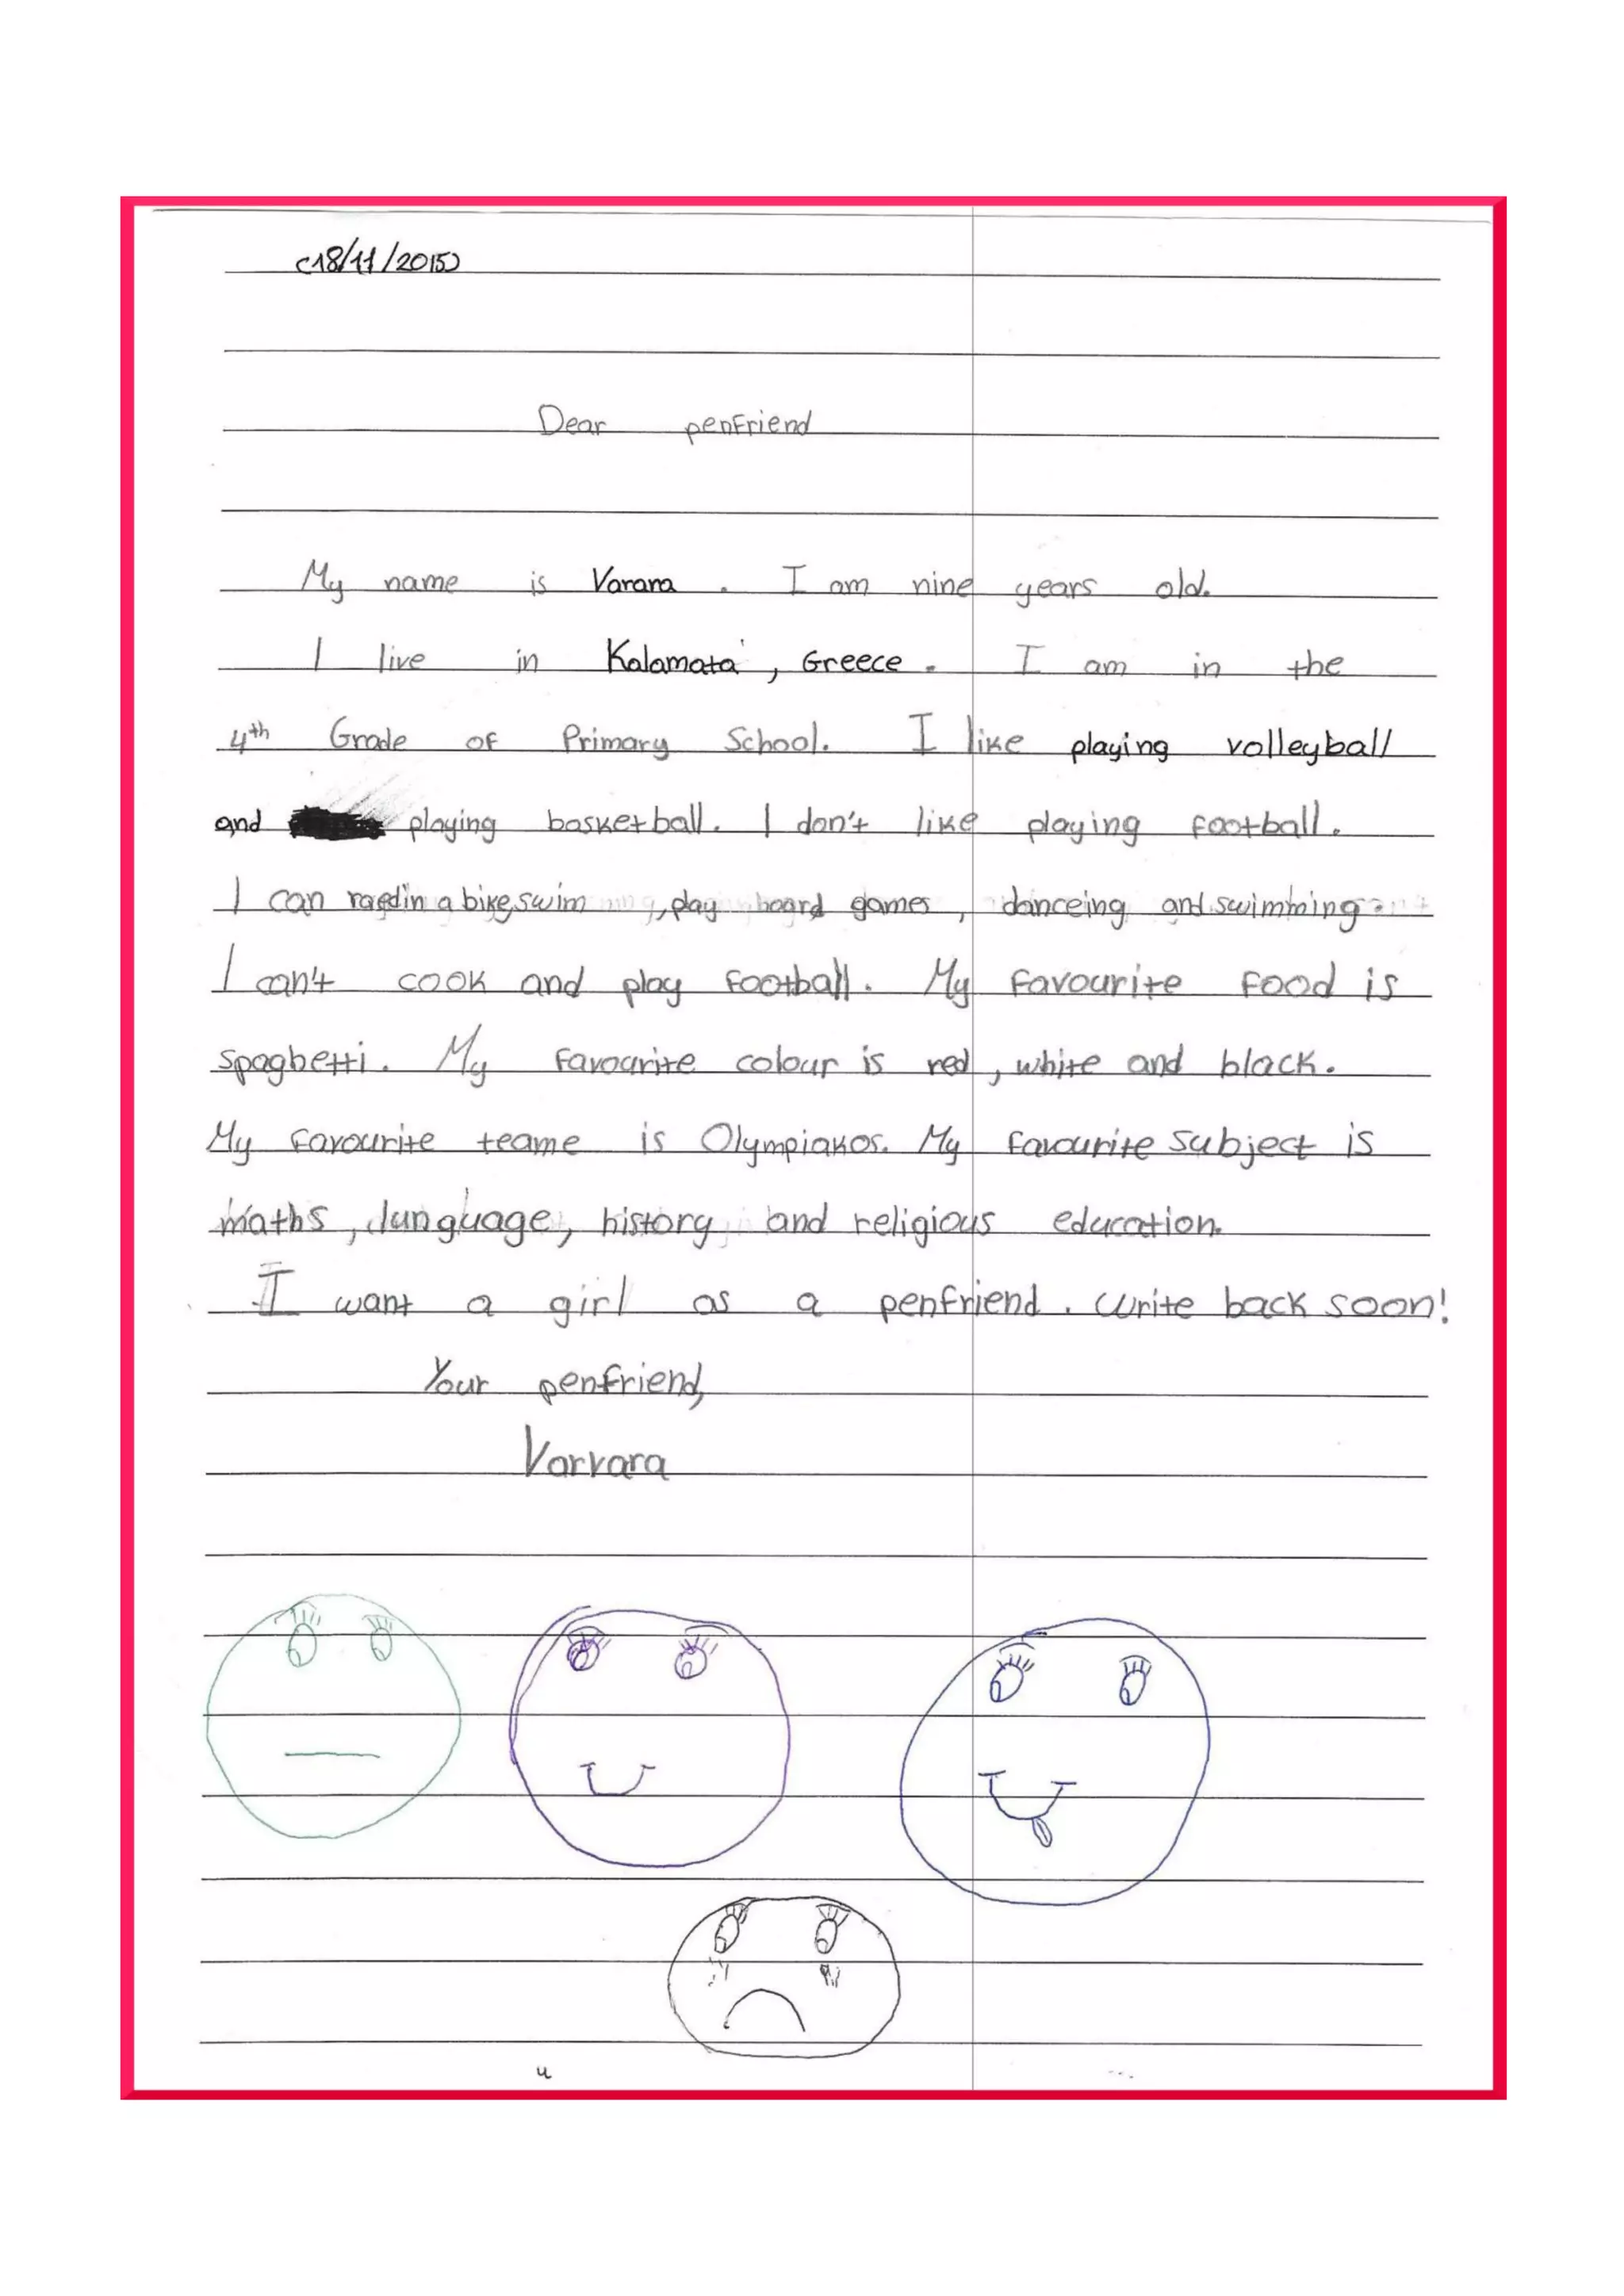 (18/11/2015)
Dear penfriend
My name is Varara. I am nine years old.
I live in Kalamata, Greece. I am in the
4th Grade of Primary School. I like playing volleyball
and playing basketball. I don't like playing football.
I can a bike, swim, play board games, danceing and swimming.
I can't cook and play football. My favourite food is
spaghetti. My favourite colour is red, white and black.
My favourite teame is Olympiakos. My favourite subject is
maths, language, history and religious education.
I want a girl as a penfriend. Write back soon!
Your penfriend,
Varvara